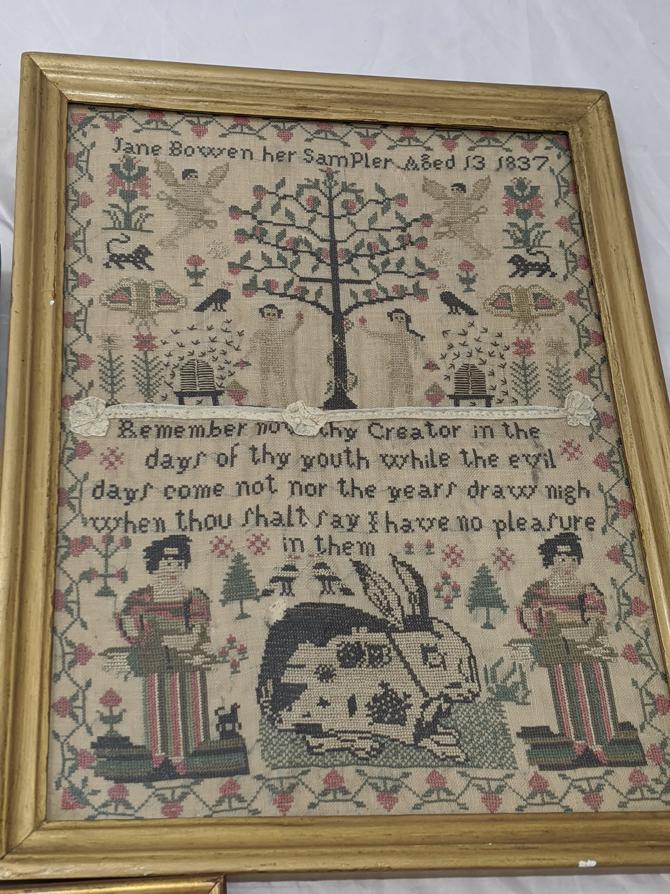 Jane Bowen her SamPler Aged 13 1837
Remember now thy Creator in the
days of thy youth while the evil
days come not nor the years draw nigh
when thou ſhalt ſay I have no pleaſure
in them